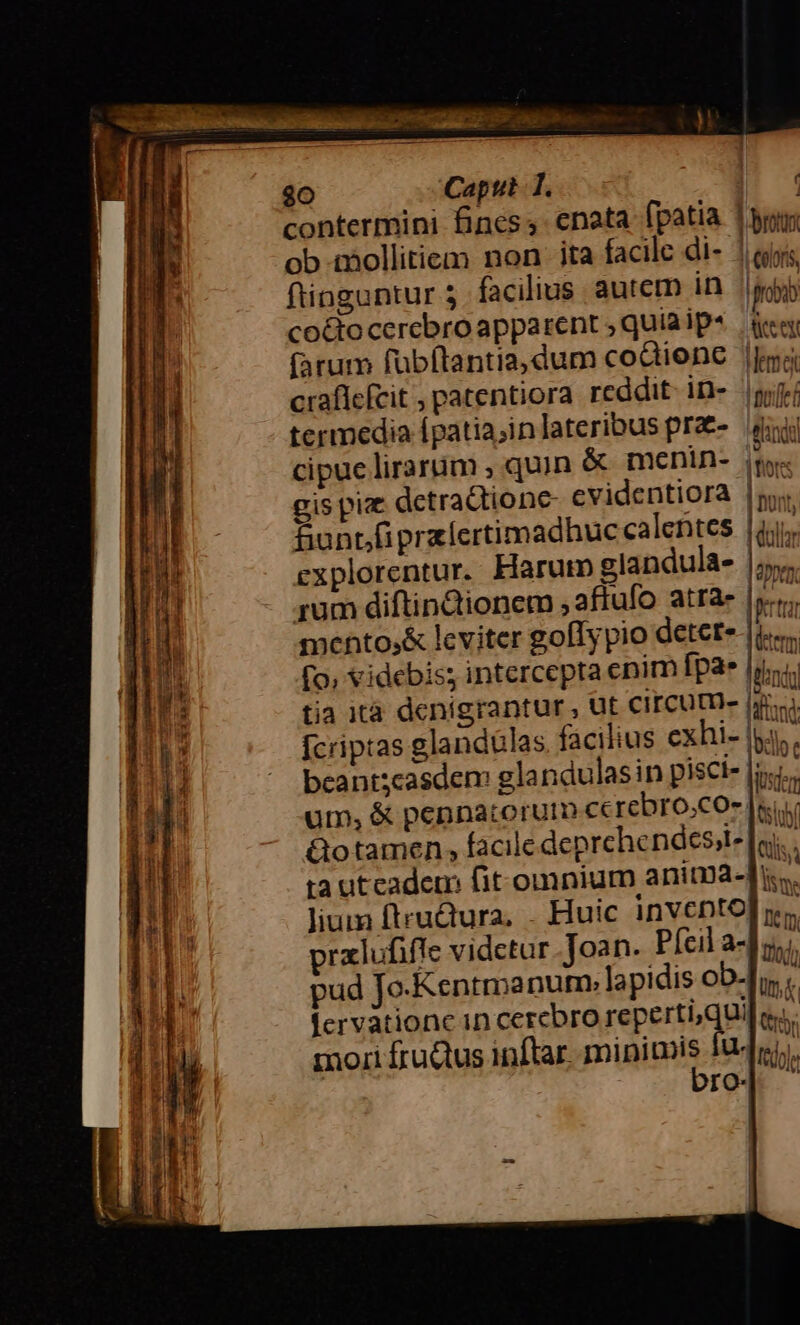 80 Caput I.
contermini fines; enata ſpatia
ob mollitiem non ita facile di-
ſtinguntur; facilius autem in
cocto cerebro apparent, quia ip-
ſarum ſubſtantia, dum coctione
craſſeſcit, patentiora reddit in-
termedia ſpatia, in lateribus præ-
cipue lirarum, quin & menin-
gis piæ detractione evidentiora
fiunt, ſi præſertim adhuc calentes
explorentur. Harum glandula-
rum diſtinctionem, affuſo atra-
mento, & leviter goſſypio deter-
ſo, videbis; intercepta enim ſpa-
tia ità denigrantur, ut circum-
ſcriptas glandulas, facilius exhi-
beant; easdem glandulas in piſci-
um, & pennatorum cerebro, co-
cto tamen, facile deprehendes, i-
ta ut eadem ſit omnium anima-
lium ſtructura. Huic invento
præluſiſſe videtur Joan. Pfeil a-
pud Jo. Kentmanum, lapidis ob-
ſervatione in cerebro reperti, qui
mori fructus inſtar minimis ſu-
bro-